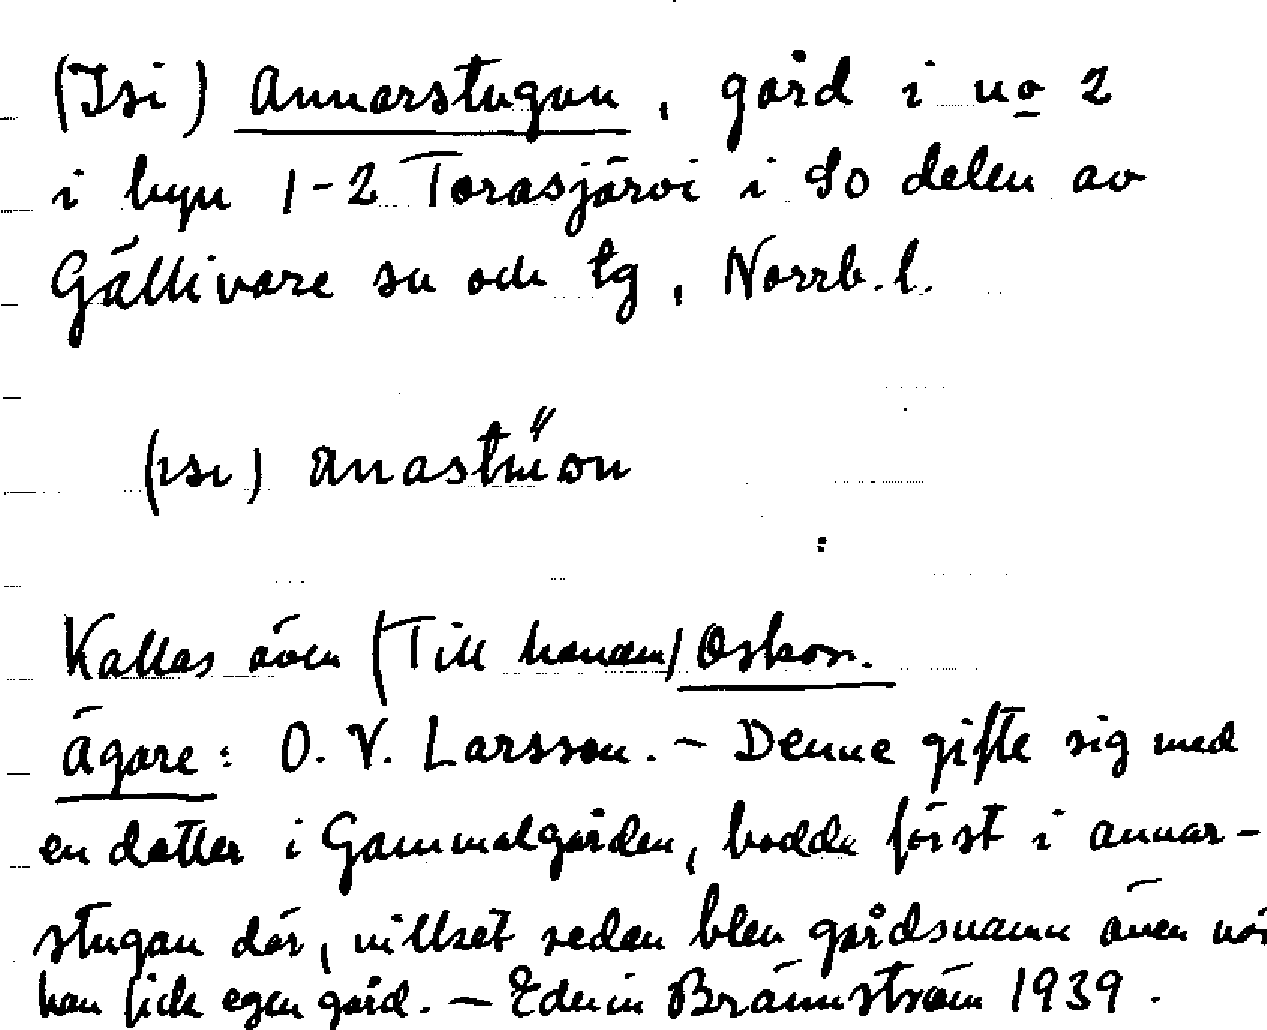 (Isi) Annarstugan, gård i no 2
i byn 1-2 Torasjärvi i SO delen av
Gällivare sn och tg, Norrb. l.
(ɪsɪ)
Kallas även (Till hanam) Oskar.
Ägare: O. V. Larsson. – Denne gifte sig med
en dotter i Gammalgården, bodde först i annar-
stugan där, vilket sedan blev gårdsnamn även när
han fick egen gård. – Edvin Brännström 1939.